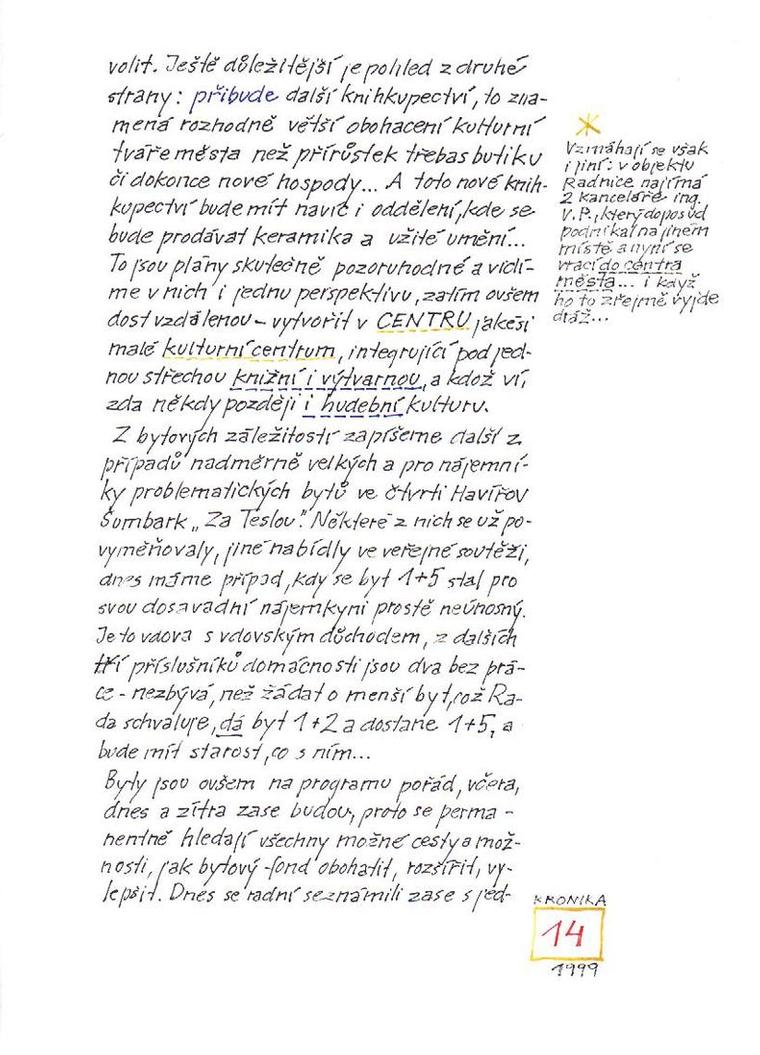 volit. Ještě důležitější je pohled z druhé
strany: přibude další knihkupectví, to zna-
mená rozhodně větší obohacení kulturní
tváře města než přírůstek třebas butiku
či dokonce nové hospody... A toto nové knih-
kupectví bude mít navíc i oddělení, kde se
bude prodávat keramika a užité umění...
To jsou plány skutečně pozoruhodné a vidí-
me v nich i jednu perspektivu, zatím ovšem
dost vzdálenou - vytvořit v CENTRU jakési
malé kulturní centrum, integrující pod jed-
nou střechou knižní i výtvarnou, a kdož ví,
zda někdy později i hudební kulturu.
Z bytových záležitostí zapíšeme další z
případů nadměrně velkých a pro nájemní-
ky problematických bytů ve čtvrti Havířov
Šumbark „Za Teslou". Některé z nich se už po-
vyměňovaly, jiné nabídly ve veřejné soutěži,
dnes máme případ, kdy se byt 1+5 stal pro
svou dosavadní nájemkyni prostě neúnosný.
Je to vdova s vdovským důchodem, z dalších
tří příslušníků domácnosti jsou dva bez prá-
ce - nezbývá, než žádat o menší byt, což Ra-
da schvaluje, dá byt 1+2 a dostane 1+5, a
bude mít starost, co s ním...
Byty jsou ovšem na programu pořád, včera,
dnes a zítra zase budou, proto se perma-
nentně hledají všechny možné cesty a mož-
nosti, jak bytový fond obohatit, rozšířit, vy-
lepšit. Dnes se radní seznámili zase s jed-
*
Vzmáhají se však
i jiní: v objektu
Radnice najímá
2 kanceláře ing.
V. P., který doposud
podnikal na jiném
místě a nyní se
vrací do centra
města... i když
ho to zřejmě vyjde
dráž...
KRONIKA
14
1999